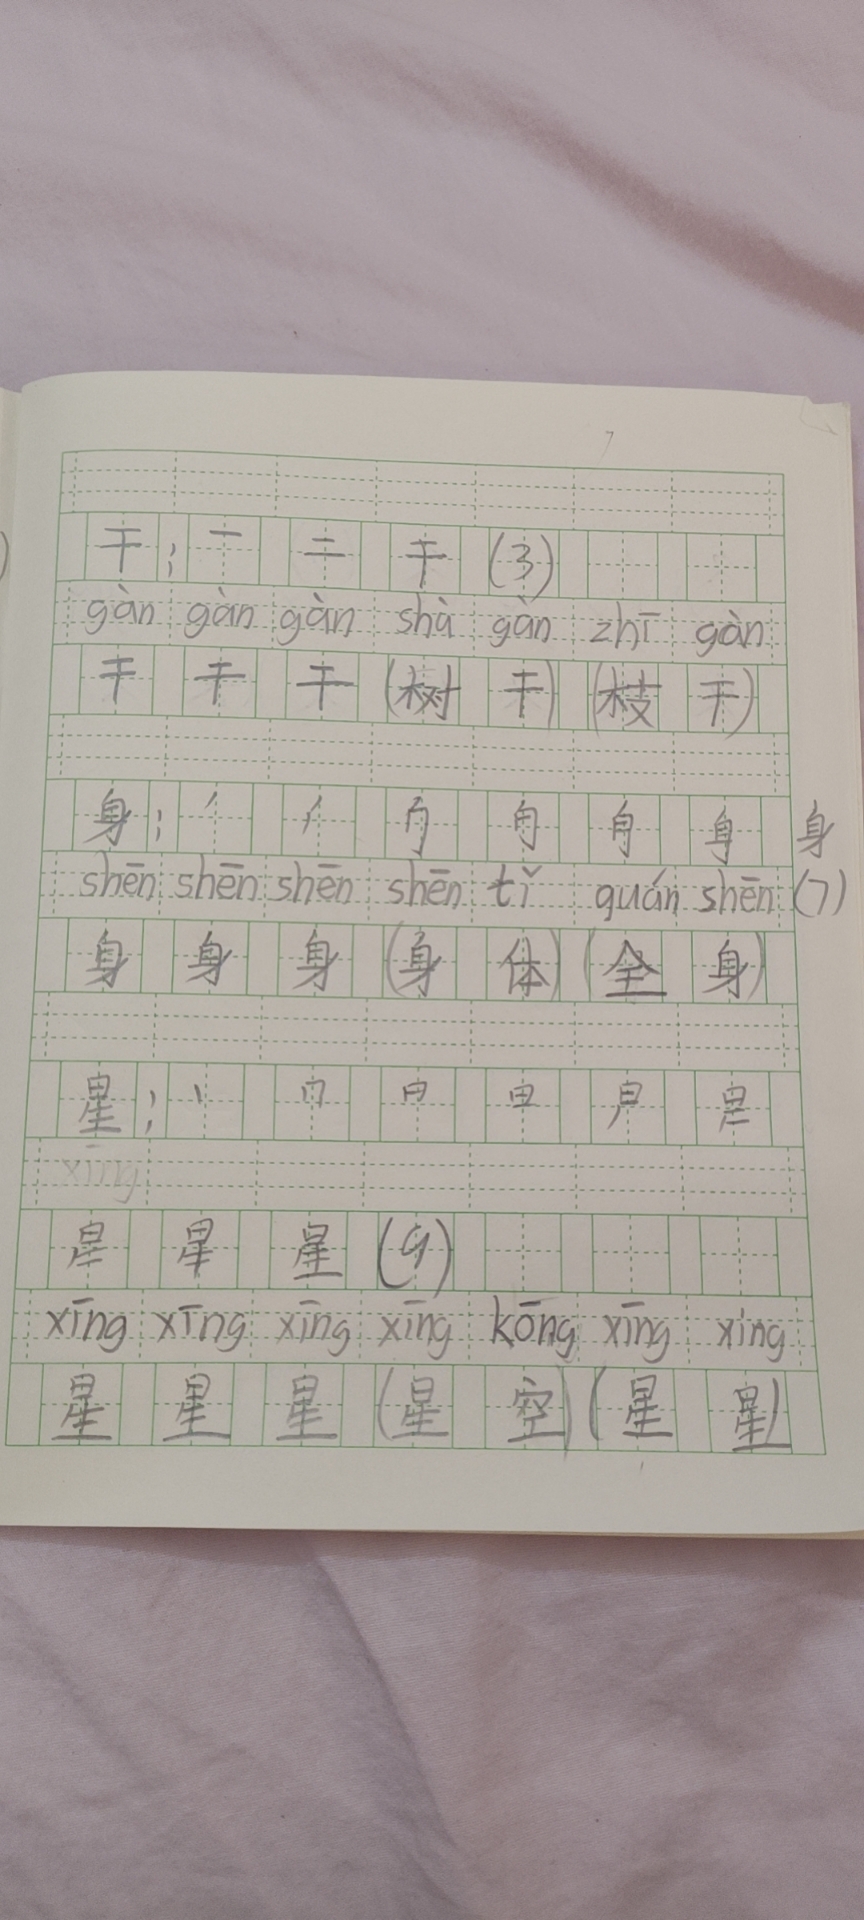 干；一 二 干 (3)
gàn gàn gàn shà gàn zhī gàn
干 干 干 (树 干) (枝 干)
身； 丿 身 身
shēn shēn shēn shēn tǐ quán shēn (7)
身 身 身 (身 体) (全 身)
星； 丶
xīng
星 (9)
xīng xīng xīng xīng kōng xīng xing
星 星 星 (星 空) (星 星)